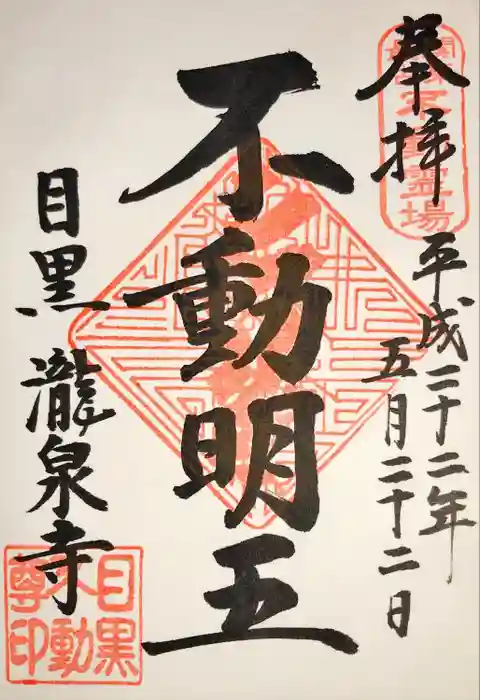 奉拝
關東不動霊場
平成二十二年
五月二十二日
不動明王
目黒 瀧泉寺
目黒
不動
尊印